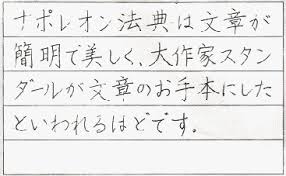 ナポレオン法典は文章が
簡明で美しく、大作家スタン
ダールが文章のお手本にした
といわれるほどです。